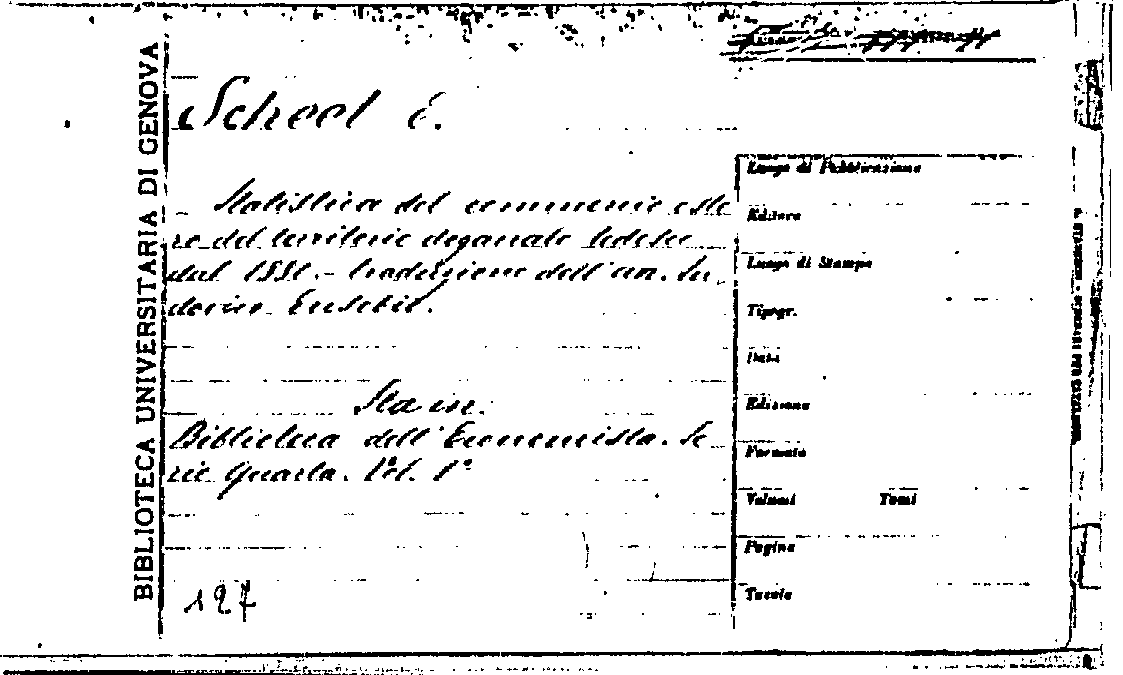 BIBLIOTECA UNIVERSITARIA DI GENOVA
Scheel E.
Statistica del commercio este
ro del territorio doganale tedesco
dal 1881. - traduzione dell'
Eusebio.
Sta in:
Biblioteca dell'Economista. Se
rie Quarta. Vol. 1°
127
Luogo di Pubblicazione
Editore
Luogo di Stampa
Tipogr.
Data
Edizione
Formato
Volumi Tomi
Pagine
Tavole